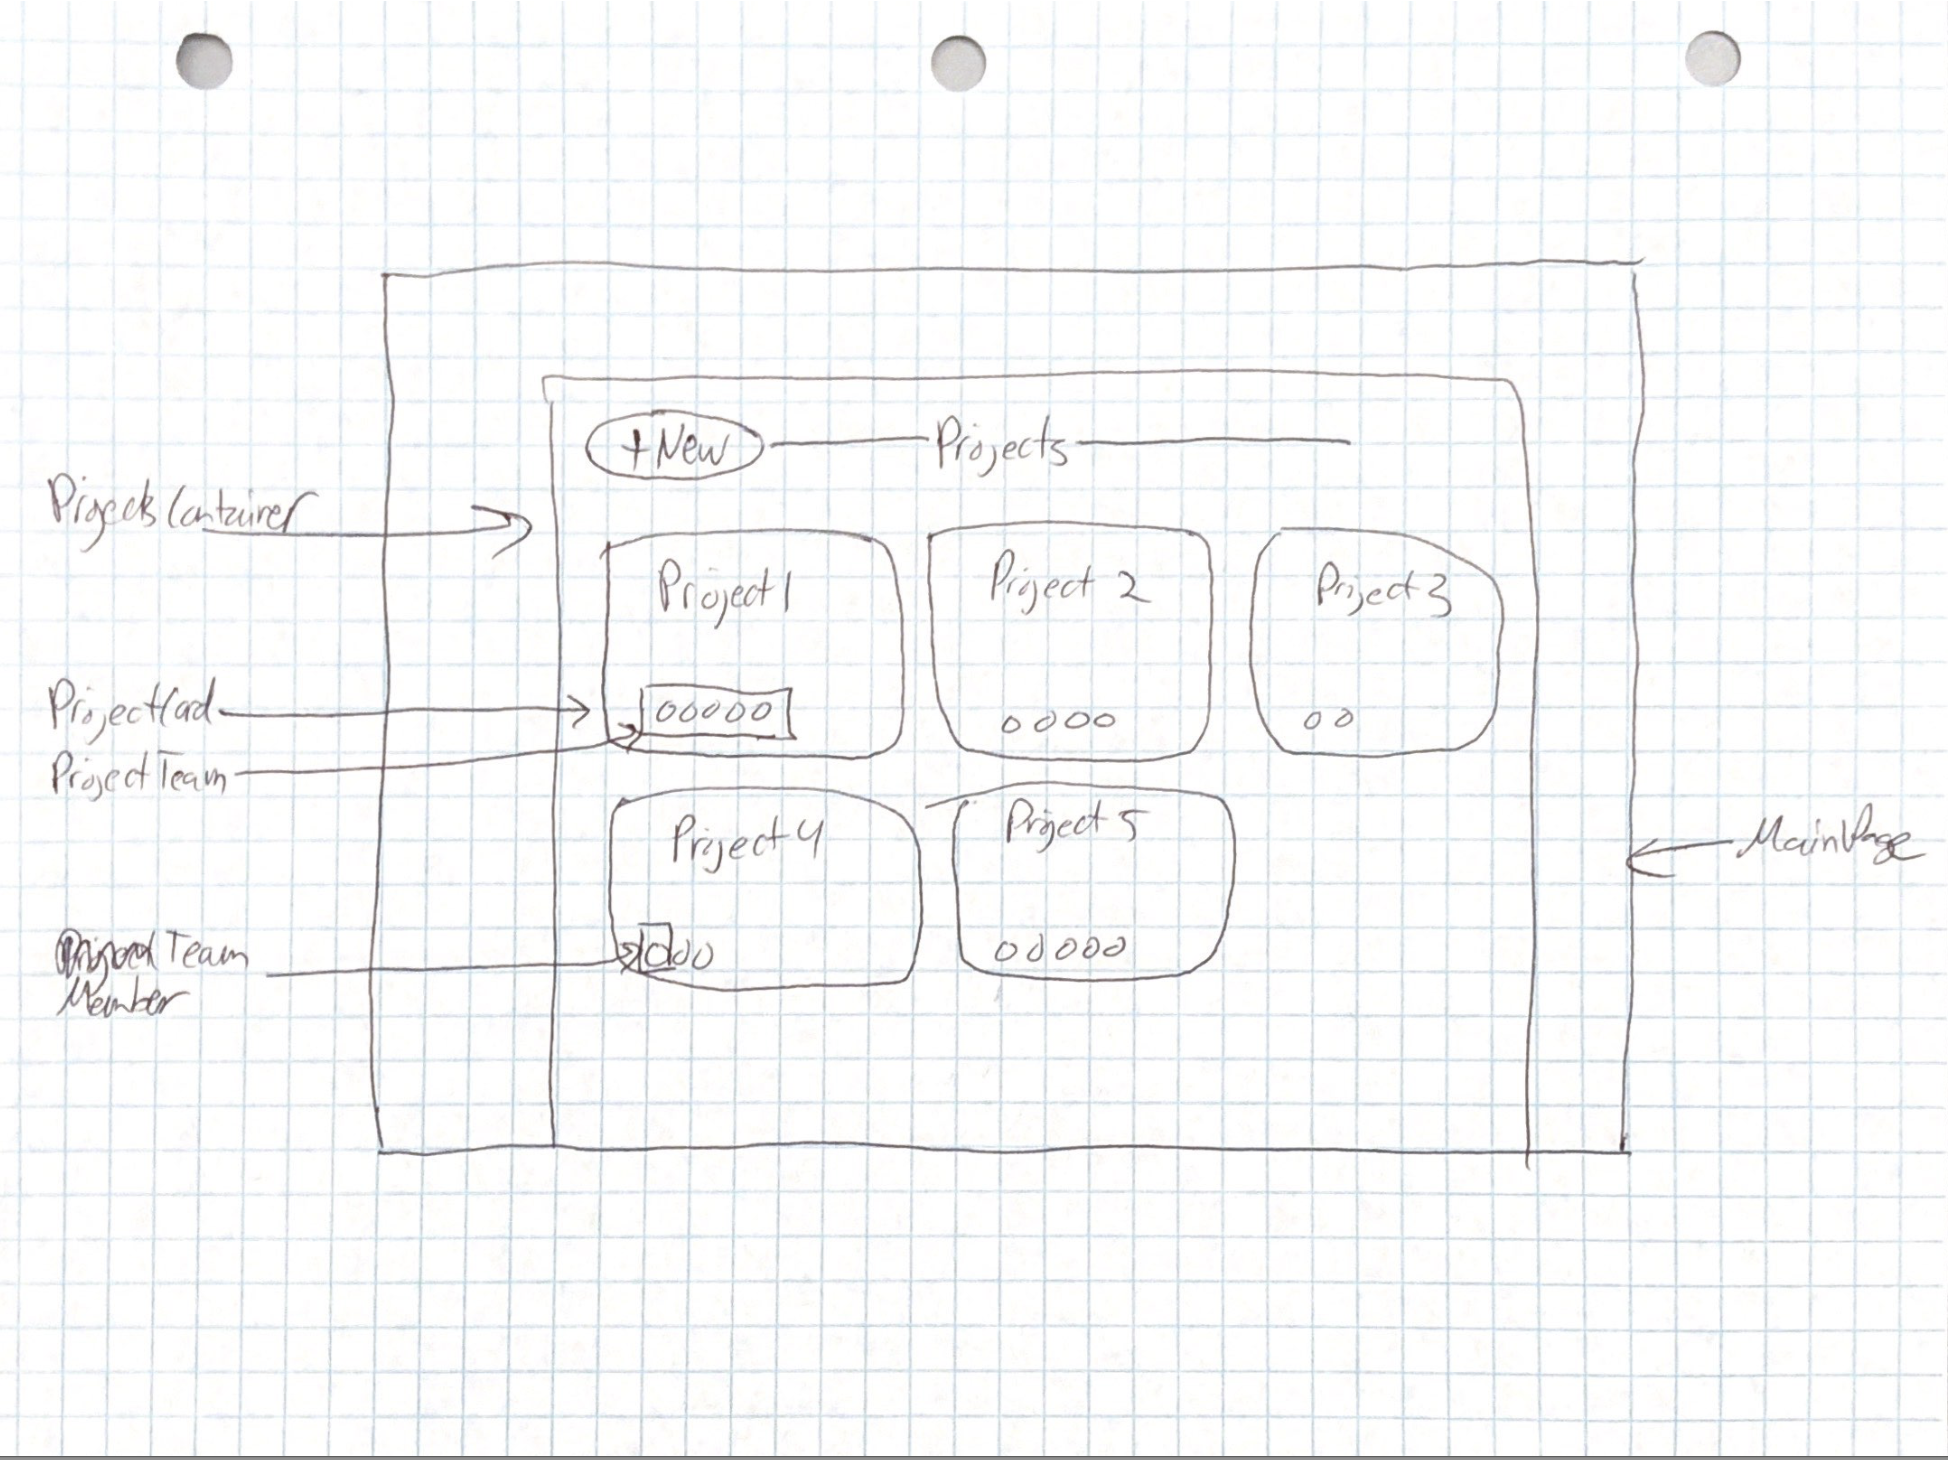 +New
Projects
Projects Container
Project 1
Project 2
Project 3
ProjectCard
00000
0000
00
Project Team
Project 4
Project 5
MainPage
Project Team
Member
000
00000